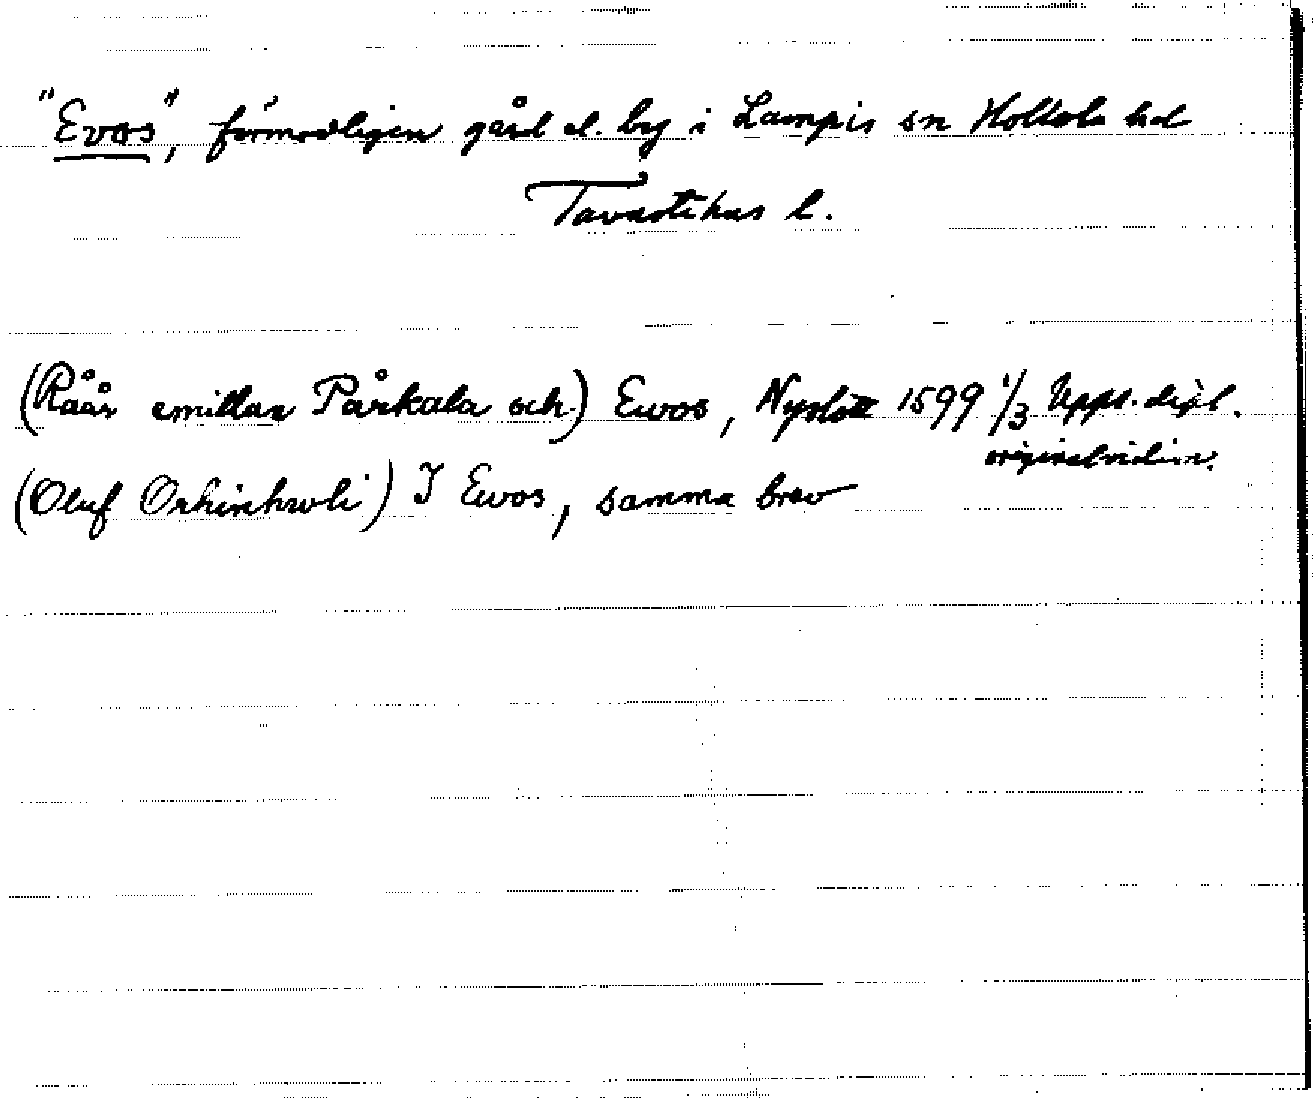 "Evos", förmodligen gård el. by i Lampis sn Hollola hd
Tavastehus l.
(Råår emillan Pårkala och) Ewos, Nyslott 1599 1/3 Uppl. dipl.
originalvidim.
(Oluf Orhinhwoli) I Ewos, samma brev